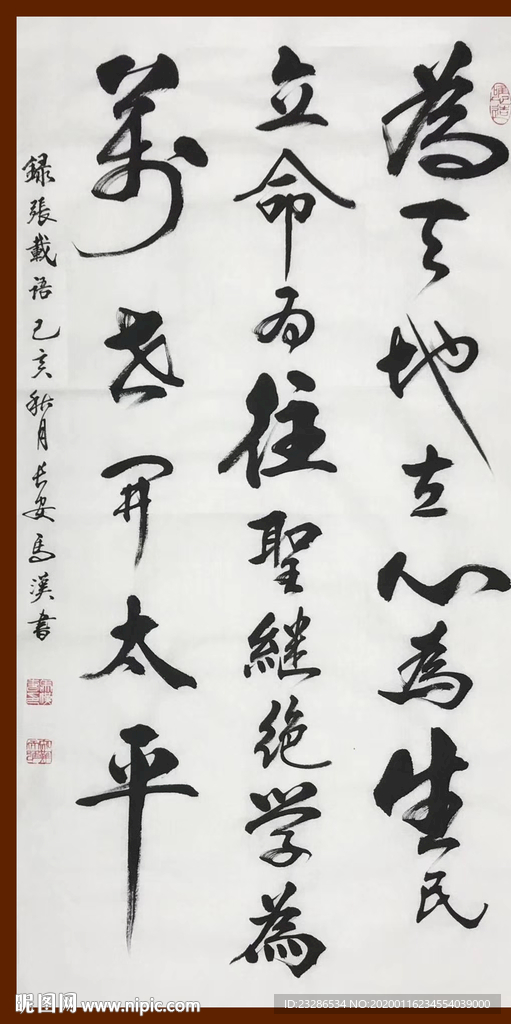 為天地立心為生民
立命为往聖継绝学為
萬世開太平
録張載语己亥秋月长安馬溪書
昵图网 www.nipic.com
ID:23286534 NO:20200116234554039000